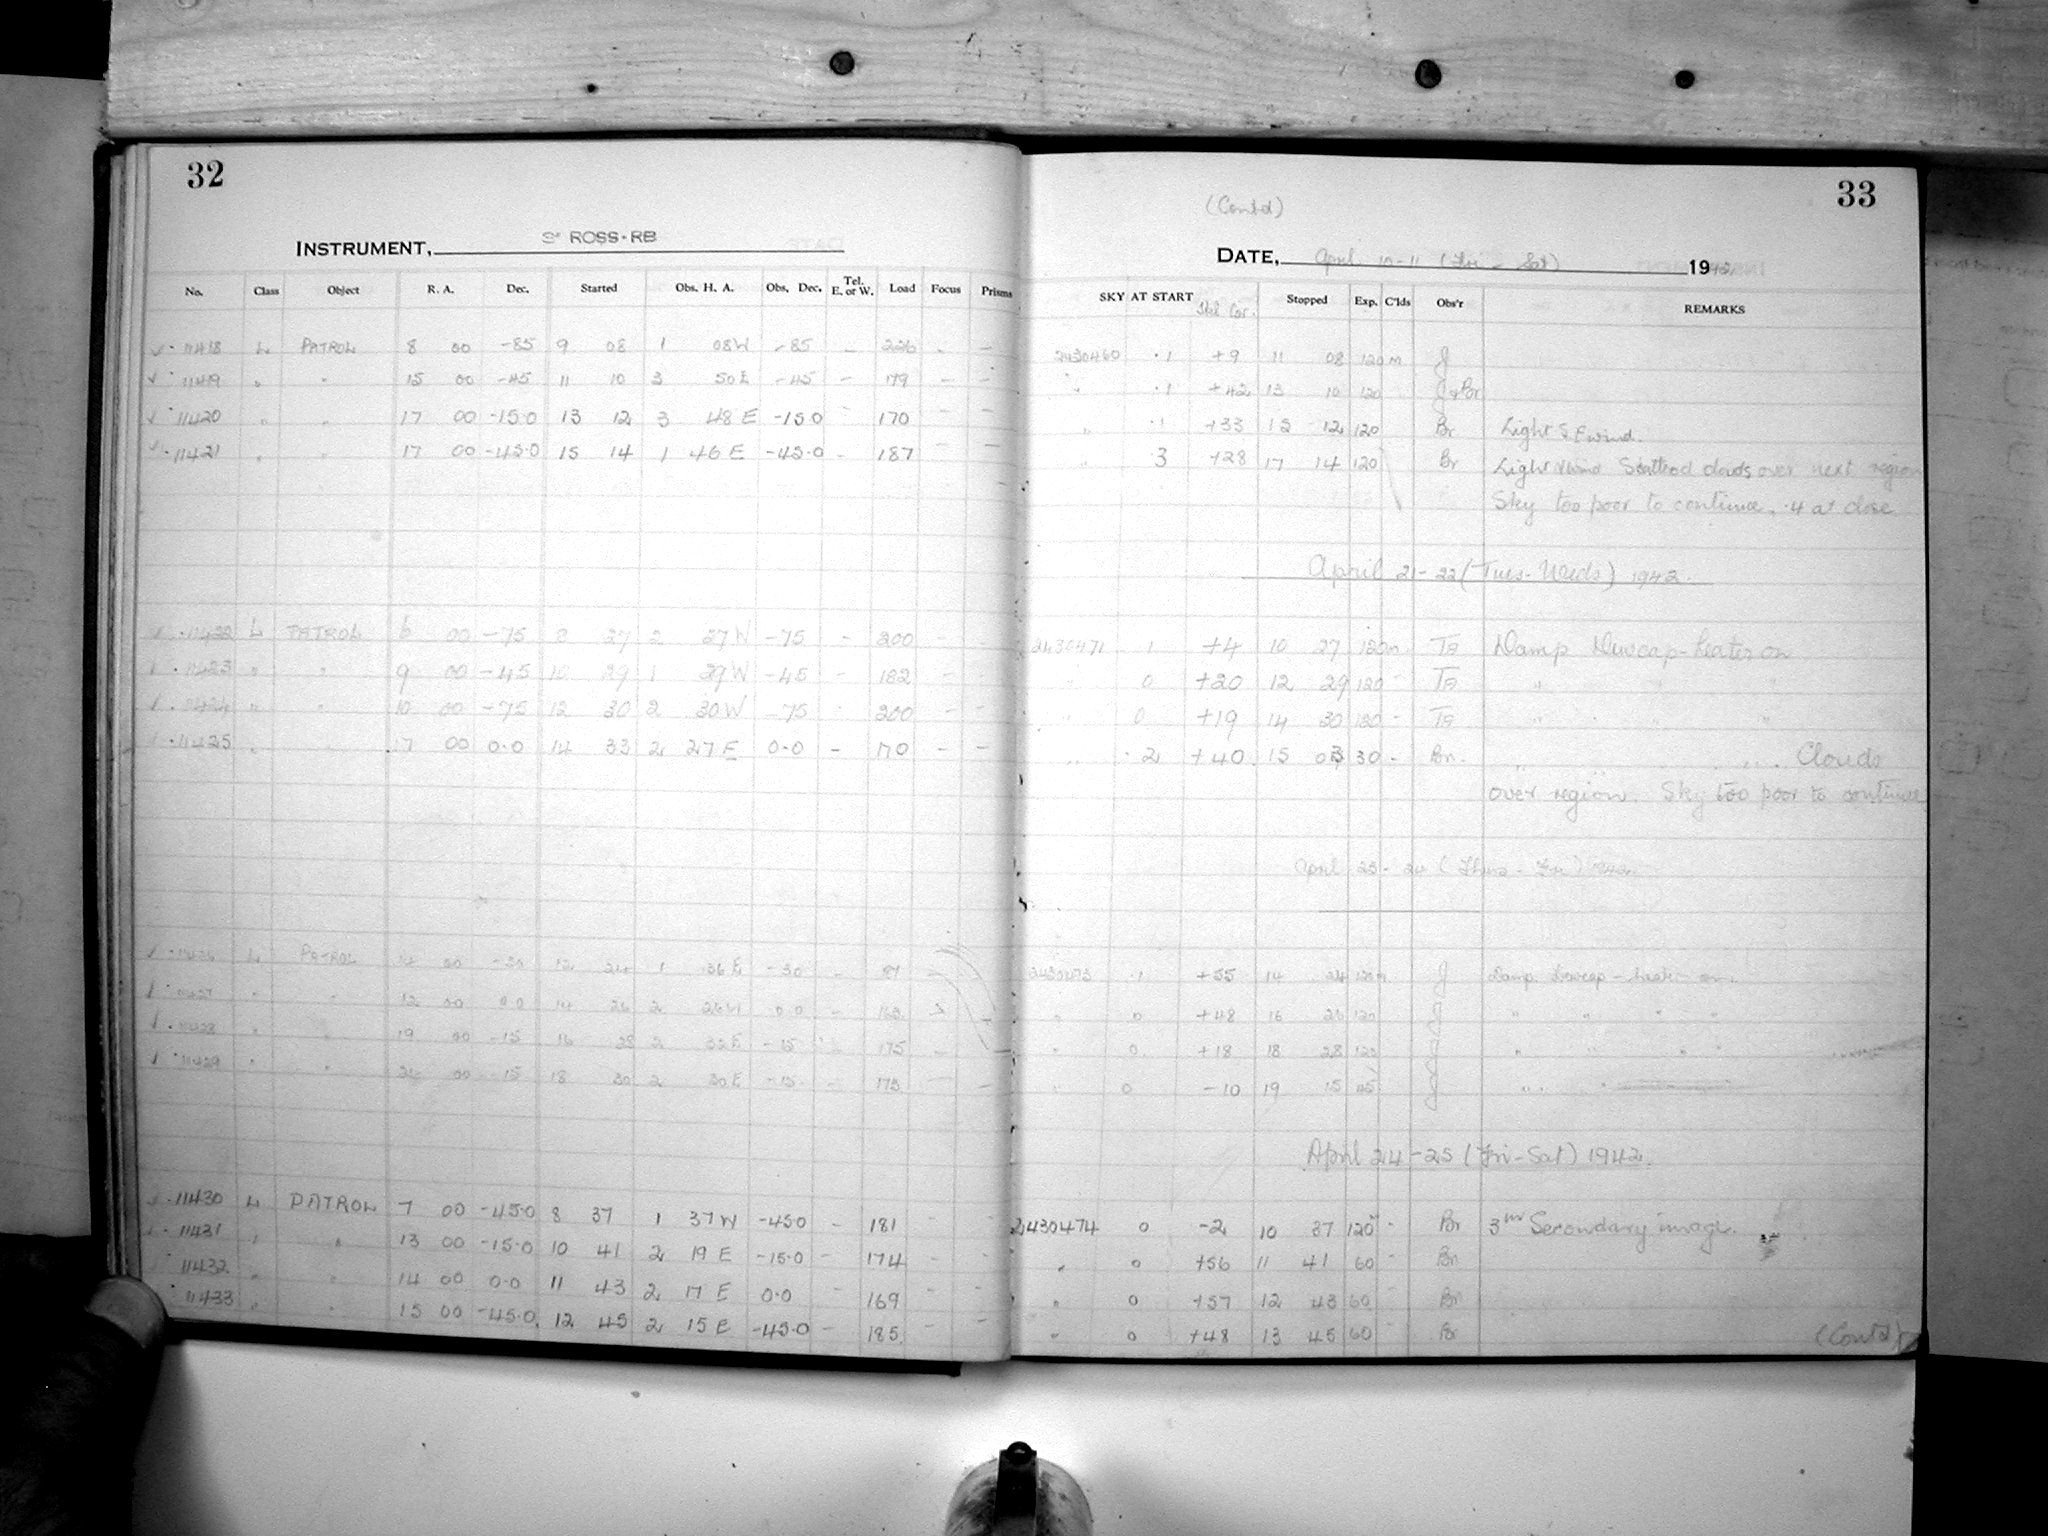 32
INSTRUMENT, 3" ROSS-RB
No. Class Object R. A. Dec. Started Obs. H. A. Obs. Dec. Tel. E. or W. Load Focus Prisms
11418 L PATROL 8 00 -85 9 08 1 08W -85 - 226 - -
11419 " " 15 00 -45 11 10 3 50E -45 - 179 - -
11420 " " 17 00 -15.0 13 12 3 48 E -15.0 - 170 - -
11421 " " 17 00 -45.0 15 14 1 46 E -45.0 - 187 - -
11422 L PATROL 6 00 -75 8 27 2 27W -75 - 200 - -
11423 " " 9 00 -45 10 29 1 29W -45 - 182 - -
11424 " " 10 00 -75 12 30 2 30W -75 - 200 - -
11425 " " 17 00 0.0 14 33 2 27E 0.0 - 170 - -
11426 L PATROL 14 00 -30 12 24 1 36E -30 -
11427 " " 12 00 0.0 14 26 2 26W 0.0 -
11428 " " 19 00 -15 16 28 2 32E -15 175 -
11429 " " 00 -15 18 30 2 30E -15 - 173 - -
11430 L PATROL 7 00 -45.0 8 37 1 37W -45.0 - 181 - -
11431 " " 13 00 -15.0 10 41 2 19 E -15.0 - 174 - -
11432 " " 14 00 0.0 11 43 2 17 E 0.0 - 169 - -
11433 " " 15 00 -45.0 12 45 2 15 E -45.0 - 185 - -
33
(Contd)
DATE, April 10-11 (Fri - Sat) 1942
SKY AT START Sid Cor. Stopped Exp. C'lds Obs'r REMARKS
2430460 .1 +9 11 08 120m J
" .1 +42 13 10 120 J & Br
" .1 +33 15 12 120 Br Light S E wind.
" .3 +28 17 14 120 Br Light wind Scattered clouds over next region
Sky too poor to continue, .4 at close
April 21-22 (Tues-Weds) 1942.
2430471 1 +4 10 27 120m - Ta Damp Dewcap-heater on
" 0 +20 12 29 120 - Ta " " "
" 0 +19 14 30 120 - Ta " " "
" .2 +40 15 03 30 - Br. " " " Clouds
over region. Sky too poor to continue
April 23-24 (Thurs - Fri) 1942
2430473 .1 +55 14 24 120m J Damp. Dewcap-heater on.
" 0 +48 16 26 120 J " " " "
" 0 +18 18 28 120 J " " " "
" 0 -10 19 15 45 J " "
April 24-25 (Fri-Sat) 1942.
2430474 0 -2 10 37 120m - Br 3m Secondary image.
" 0 +56 11 41 60 - Br
" 0 +57 12 43 60 - Br
" 0 +48 13 45 60 - Br
(Cont'd)